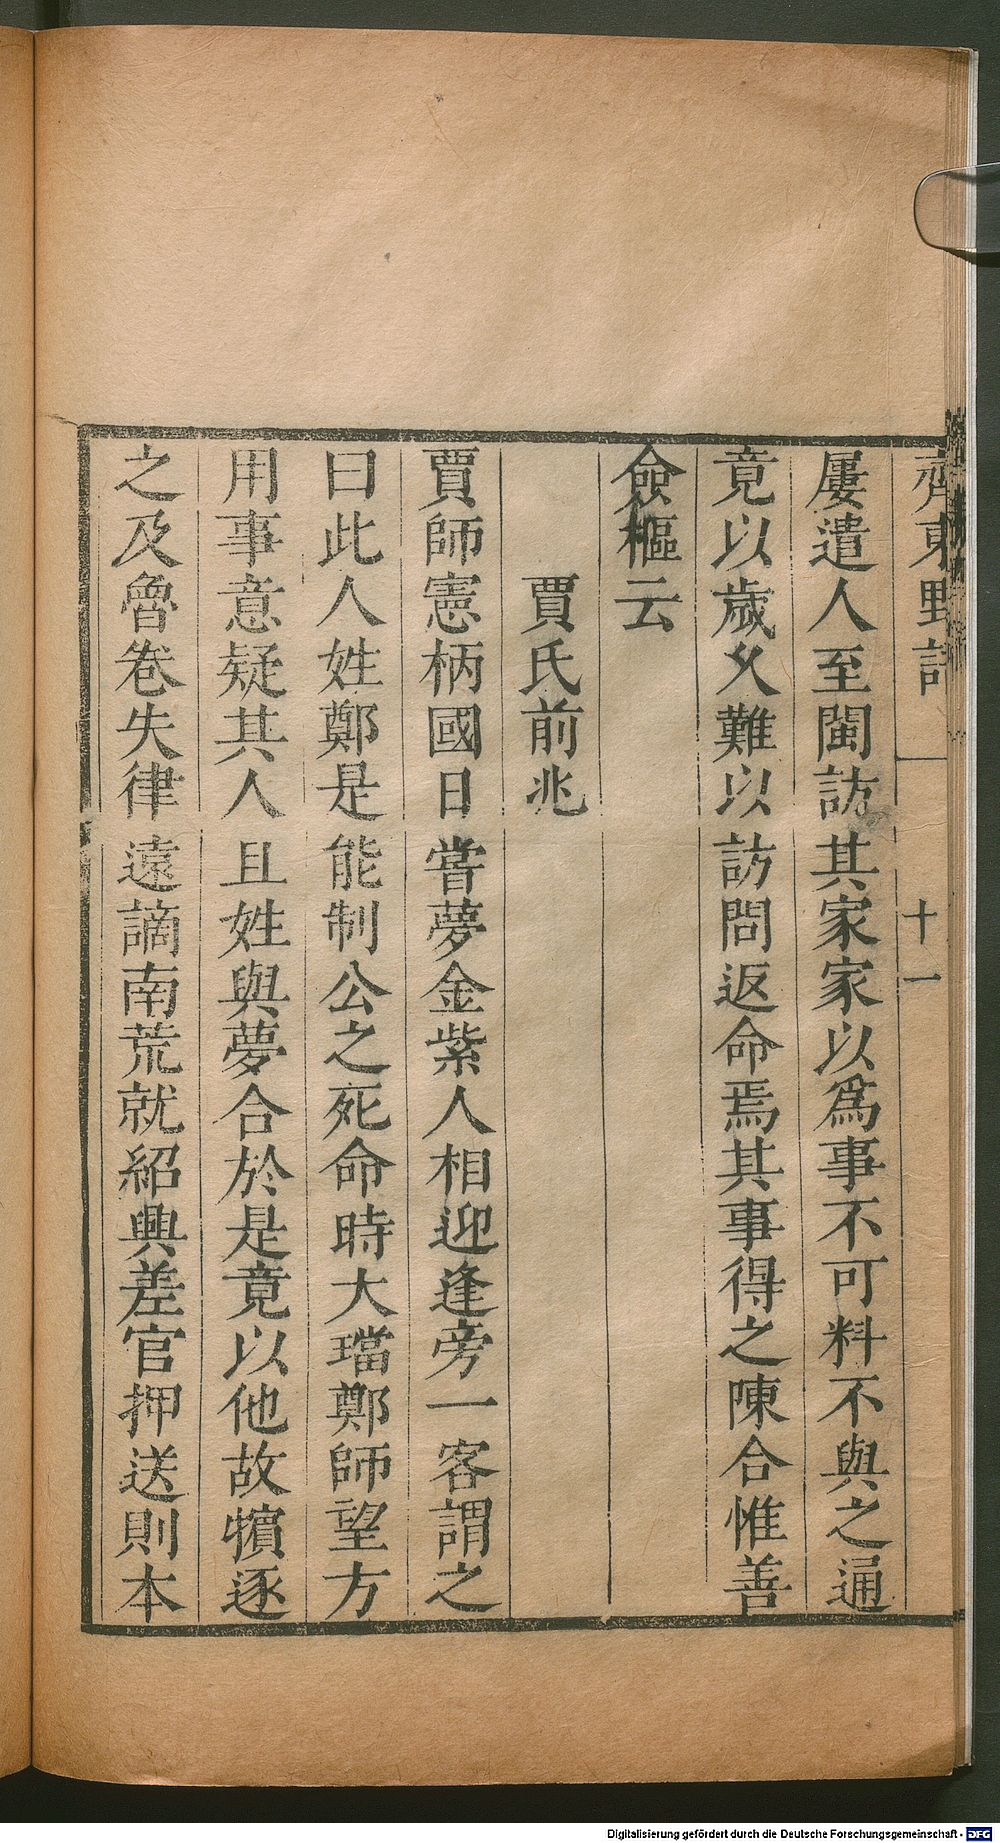 齊東野語 十一
屢遣人至閩訪其家家以爲事不可料不與之通
竟以歲久難以訪問返命焉其事得之陳合惟善
僉樞云
賈氏前兆
賈師憲柄國日嘗夢金紫人相迎逢旁一客謂之
曰此人姓鄭是能制公之死命時大璫鄭師望方
用事意疑其人且姓與夢合於是竟以他故擯逐
之及魯卷失律遠謫南荒就紹興差官押送則本
Digitalisierung gefördert durch die Deutsche Forschungsgemeinschaft - DFG